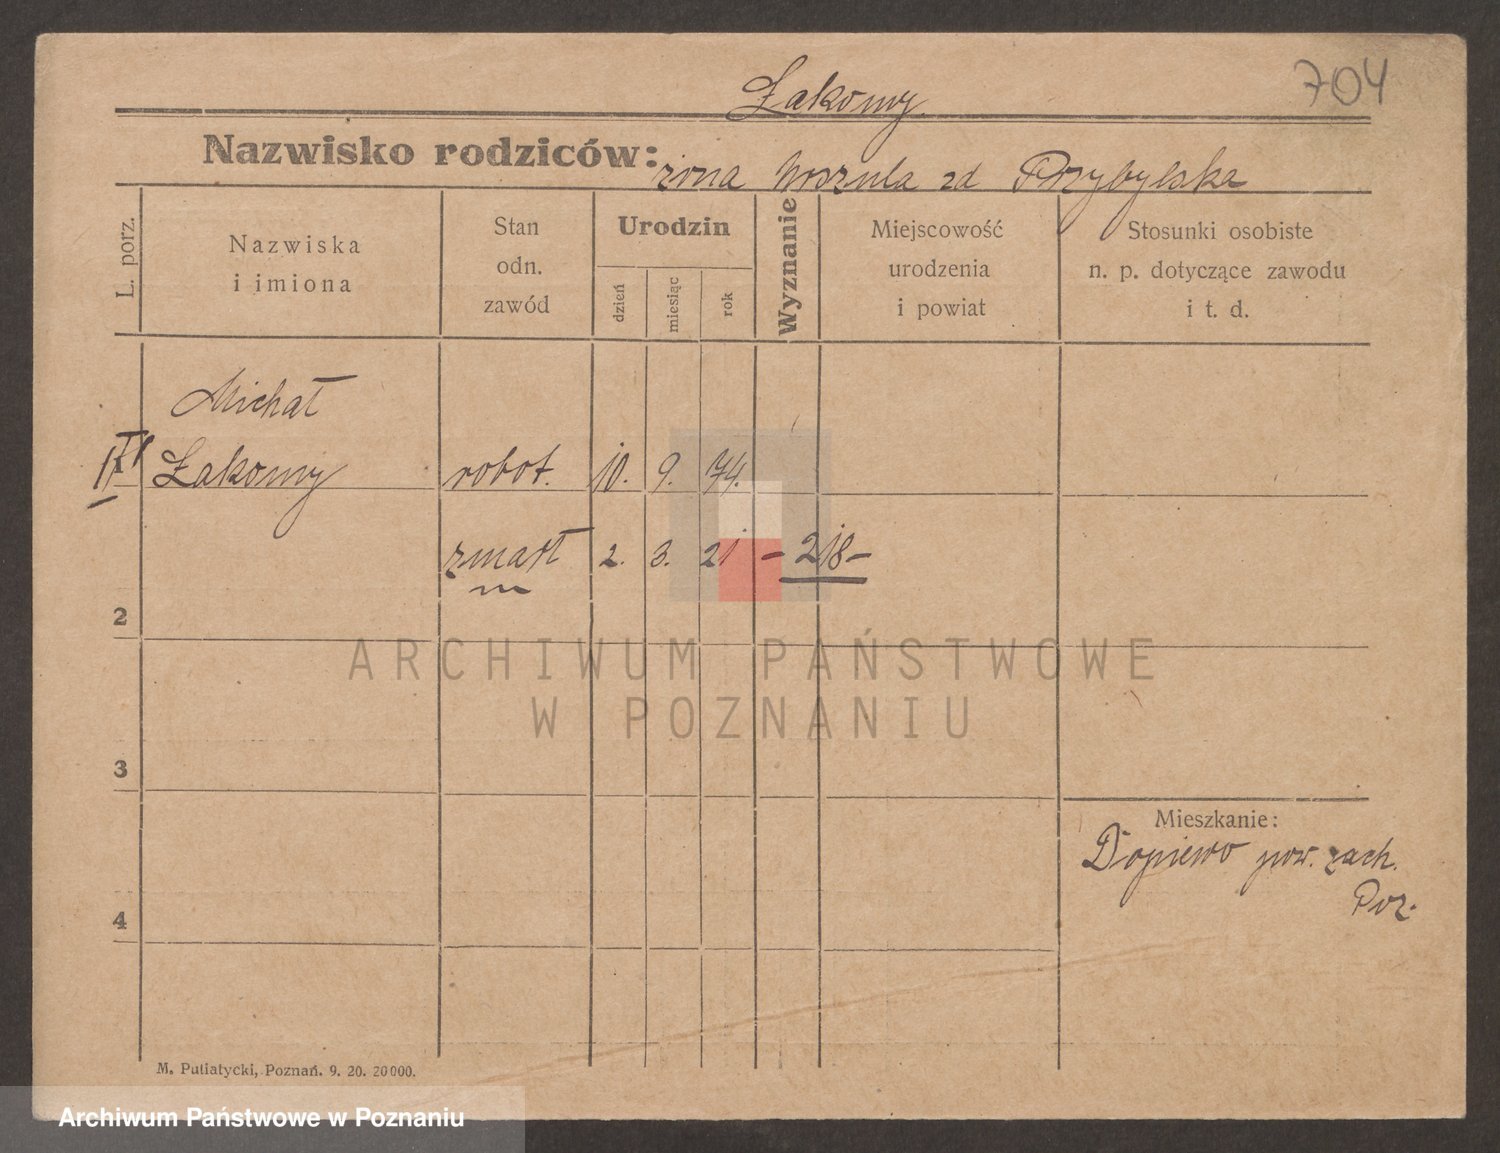 704
Łakomy
Nazwisko rodziców: żona Urszula zd Przybylska
L. porz.
Nazwiska
i imiona
Stan
odn.
zawód
Urodzin
dzień
miesiąc
rok
Wyznanie
Miejscowość
urodzenia
i powiat
Stosunki osobiste
n. p. dotyczące zawodu
i t. d.
Michał
Łakomy robot. 10. 9. 74.
zmarł 2. 3. 21 – 218 –
2
3
4
Mieszkanie:
Dopiewo pow. zach.
Poz.
ARCHIWUM PAŃSTWOWE
W POZNANIU
M. Putiatycki, Poznań. 9. 20. 20000.
Archiwum Państwowe w Poznaniu